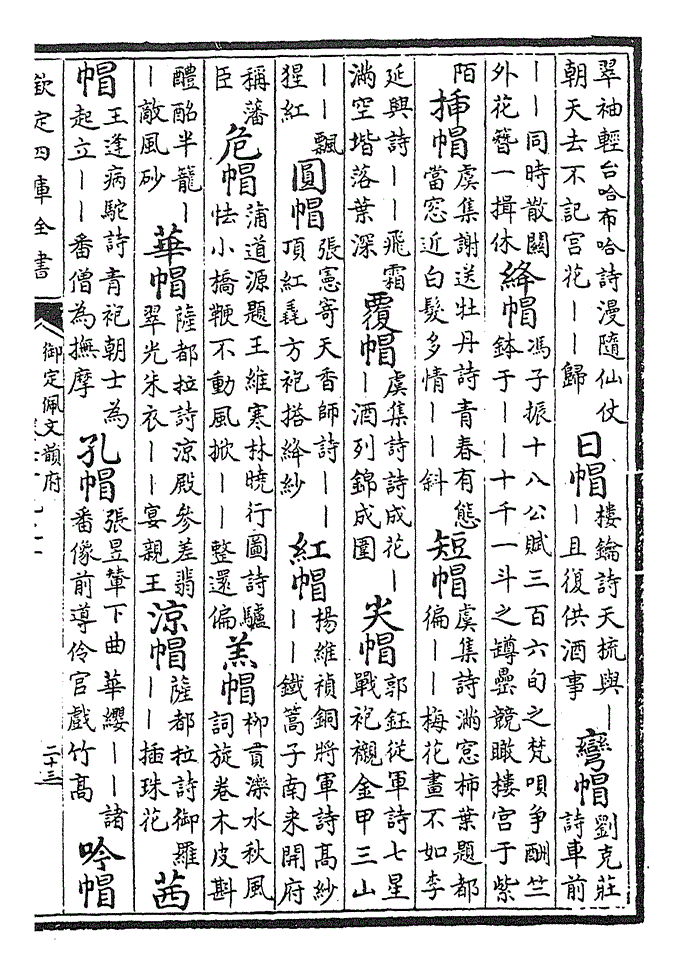 翠袖輕台哈布哈詩漫隨仙仗
朝天去不記宫花——歸
日帽
樓鑰詩天梳與—
—且復供酒事
彎帽
劉克莊
詩車前
——同時散闗
外花簪一揖休
絳帽
馮子振十八公賦三百六旬之梵唄争酬竺
鉢于——十千一斗之罇罍競瞰樓宫于紫
陌
挿帽
虞集謝送牡丹詩青春有態
當窓近白髮多情——斜
短帽
虞集詩滿窓柿葉題都
徧——梅花畫不如李
延興詩——飛霜
滿空堦落葉深
覆帽
虞集詩詩成花—
—酒列錦成圍
尖帽
郭鈺從軍詩七星
戰袍襯金甲三山
——飄
猩紅
圓帽
張憲寄天香師詩——
頂紅毳方袍搭絳紗
紅帽
楊維禎銅將軍詩髙紗
——鐵篙子南来開府
稱藩
臣
危帽
蒲道源題王維寒林曉行圖詩驢
怯小橋鞭不動風掀——整還偏
羔帽
柳貫灤水秋風
詞旋卷木皮斟
醴酪半籠—
—敵風砂
華帽
薩都拉詩涼殿參差翡
翠光朱衣——宴親王
涼帽
薩都拉詩御羅
——插珠花
茜
帽
王逢病駝詩青袍朝士為
起立——番僧為撫摩
孔帽
張昱輦下曲華纓——諸
番像前導伶官戲竹髙
吟帽
欽定四庫全書
御定佩文韻府
二十三